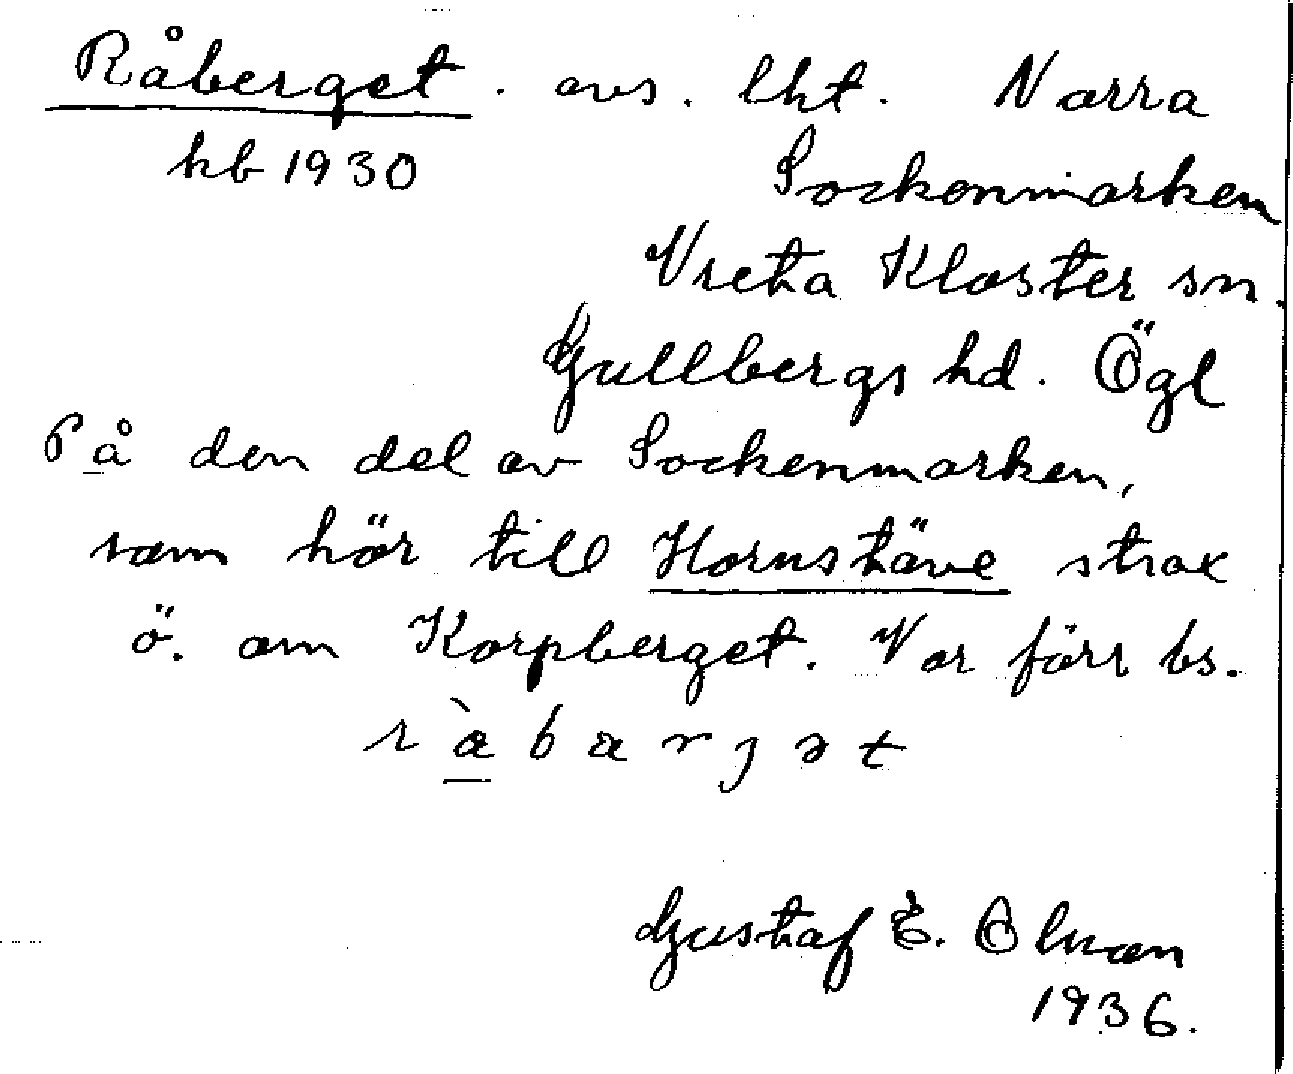 Råberget. avs. lht. Norra
hb 1930
Sockenmarken
Vreta Kloster sn.
Gullbergs hd. Ögl
På den del av Sockenmarken,
som hör till Hornstäve strax
ö. om Korpberget. Var förr bs.
ràbarjət
Gustaf E. Olson
1936.